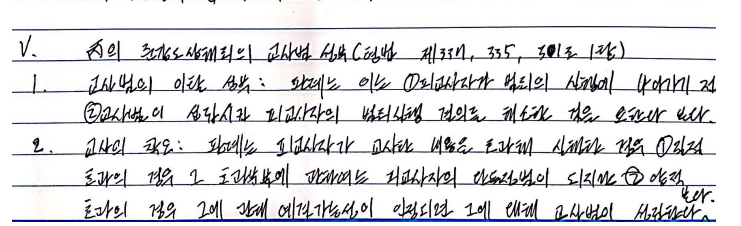 V. 甲의 준강도상해죄의 교사범 성부(형법 제337, 335, 31조 1항)
1. 교사범의 이탈 성부: 판례는 이는 ①피교사자가 범죄의 실행에 나아가기 전
②교사범이 상당시키 피교사자의 범죄실행 결의를 해소한 것을 요한다 본다.
2. 교사의 착오: 판례는 피교사자가 교사한 내용을 초과해 실행한 경우 ①질적
초과의 경우 그 초과부분에 관하여는 교사범이 되지않 ② 양적
초과의 경우 그에 관해 예견가능성이 인정되면 그에 대해 교사범이 성립한다. 본다.